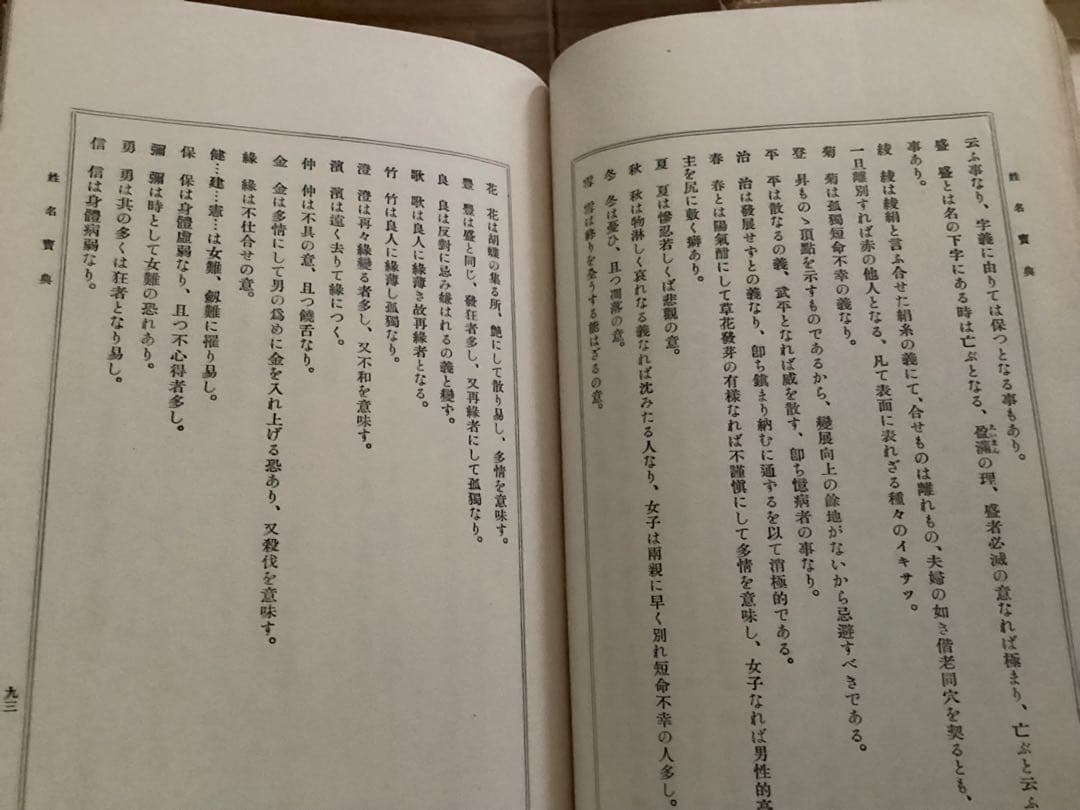 姓名寶典
云ふ事なり、字義に由りては保つとなる事もあり。
盛 盛とは名の下字にある時は亡ぶとなる、盈滿の理、盛者必滅の意なれば極まり、亡ぶと云ふ
事あり。
綾 綾は綾絹と言ふ合せた絹糸の義にて、合せものは離れもの、夫婦の如き偕老同穴を契るとも、
一旦離別すれば赤の他人となる、凡て表面に表れざる種々のイキサツ。
菊 菊は孤獨短命不幸の義なり。
登 昇ものゝ頂點を示すものであるから、變展向上の餘地がないから忌避すべきである。
平 平は散なるの義、武平となれば威を散す、卽ち憶病者の事なり。
治 治は發展せずとの義なり、卽ち鎭まり納むに通ずるを以て消極的である。
春 春とは陽氣酣にして草花發芽の有樣なれば不謹愼にして多情を意味し、女子なれば男性的
主を尻に敷く癖あり。
夏 夏は慘忍若しくば悲觀の意。
秋 秋は物淋しく哀れなる義なれば沈みたる人なり、女子は兩親に早く別れ短命不幸の人多し。
冬 冬は憂ひ、且つ凋落の意。
雪 雪は終りを全うする能はざるの意。
花 花は胡蝶の集る所、艶にして散り易し、多情を意味す。
豐 豐は盛と同じ、發狂者多し、又再緣者にして孤獨なり。
良 良は反對に忌み嫌はれるの義と變ず。
歌 歌は良人に緣薄き故再緣者となる。
竹 竹は良人に緣薄し孤獨なり。
澄 澄は再々緣變る者多し、又不和を意味す。
濱 濱は遠く去りて緣につく。
仲 仲は不具の意、且つ饒舌なり。
金 金は多情にして男の爲めに金を入れ上げる恐あり、又殺伐を意味す。
緣 緣は不仕合せの意。
健…建…憲…は女難、劔難に罹り易し。
保 保は身體虛弱なり、且つ不心得者多し。
彌 彌は時として女難の恐れあり。
勇 勇は其の多くは狂者となり易し。
信 信は身體病弱なり。
姓名寶典
九三